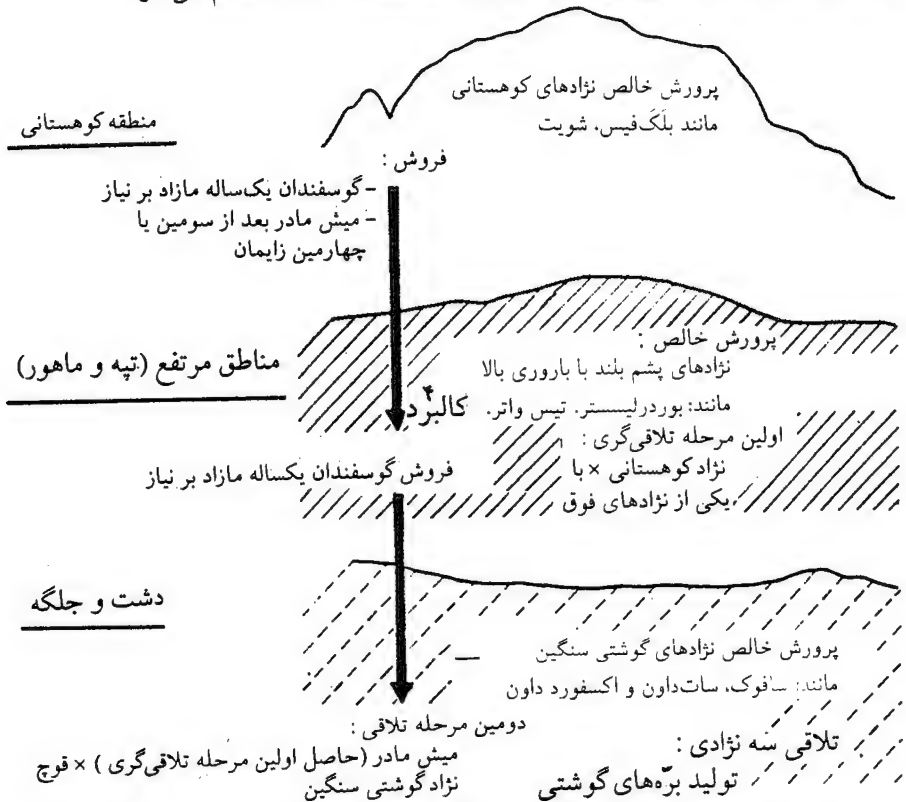 پرورش خالص نژادهای کوهستانی
مانند بلَک‌فیس، شویت
منطقه کوهستانی
فروش :
- گوسفندان یک‌ساله مازاد بر نیاز
- میش مادر بعد از سومین یا
چهارمین زایمان
مناطق مرتفع (تپه و ماهور)
پرورش خالص :
نژادهای پشم بلند با باروری بالا
مانند: بوردرلیسستر. تیس واتر. کالبرد۴
اولین مرحله تلاقی‌گری :
نژاد کوهستانی × با
یکی از نژادهای فوق
فروش گوسفندان یکساله مازاد بر نیاز
دشت و جلگه
پرورش خالص نژادهای گوشتی سنگین
مانند: سافوک، سات‌داون و اکسفورد داون
دومین مرحله تلاقی :
میش مادر (حاصل اولین مرحله تلاقی‌گری ) × قوچ
نژاد گوشتی سنگین
تلاقی سه نژادی :
تولید برّه‌های گوشتی